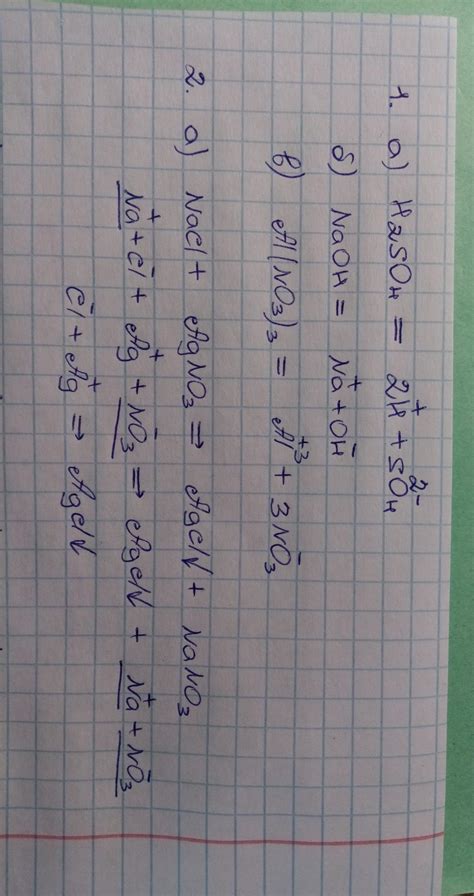 1. а) H₂SO₄ = 2H⁺ + SO₄²⁻
б) NaOH = Na⁺ + OH⁻
в) Al(NO₃)₃ = Al⁺³ + 3NO₃⁻
2. а) NaCl + AgNO₃ ⇒ AgCl↓ + NaNO₃
Na⁺ + Cl⁻ + Ag⁺ + NO₃⁻ ⇒ AgCl↓ + Na⁺ + NO₃⁻
Cl⁻ + Ag⁺ ⇒ AgCl↓